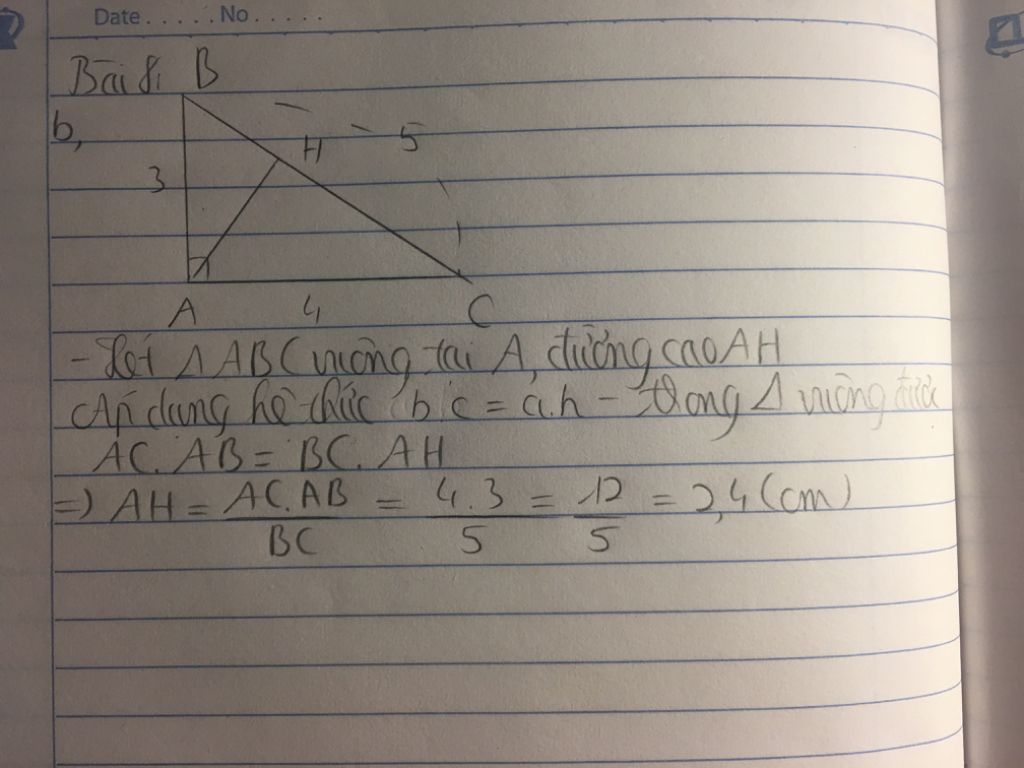 Date ..... No .....
Bài 8: B
b,
H 5
3
A 4 C
- Xét Δ ABC vuông tại A, đường cao AH
Áp dụng hệ thức b.c = a.h - trong Δ vuông được
AC. AB = BC. AH
=) AH = AC.AB / BC = 4.3 / 5 = 12 / 5 = 2,4 (cm)